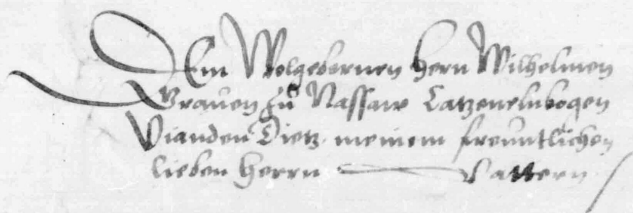 Dem Wolgebornen hern Wilhelmen
Grauen zu Nassaw Catzenelnbogen
Vianden Dietz meinem freuntlichen
lieben herrn Vattern